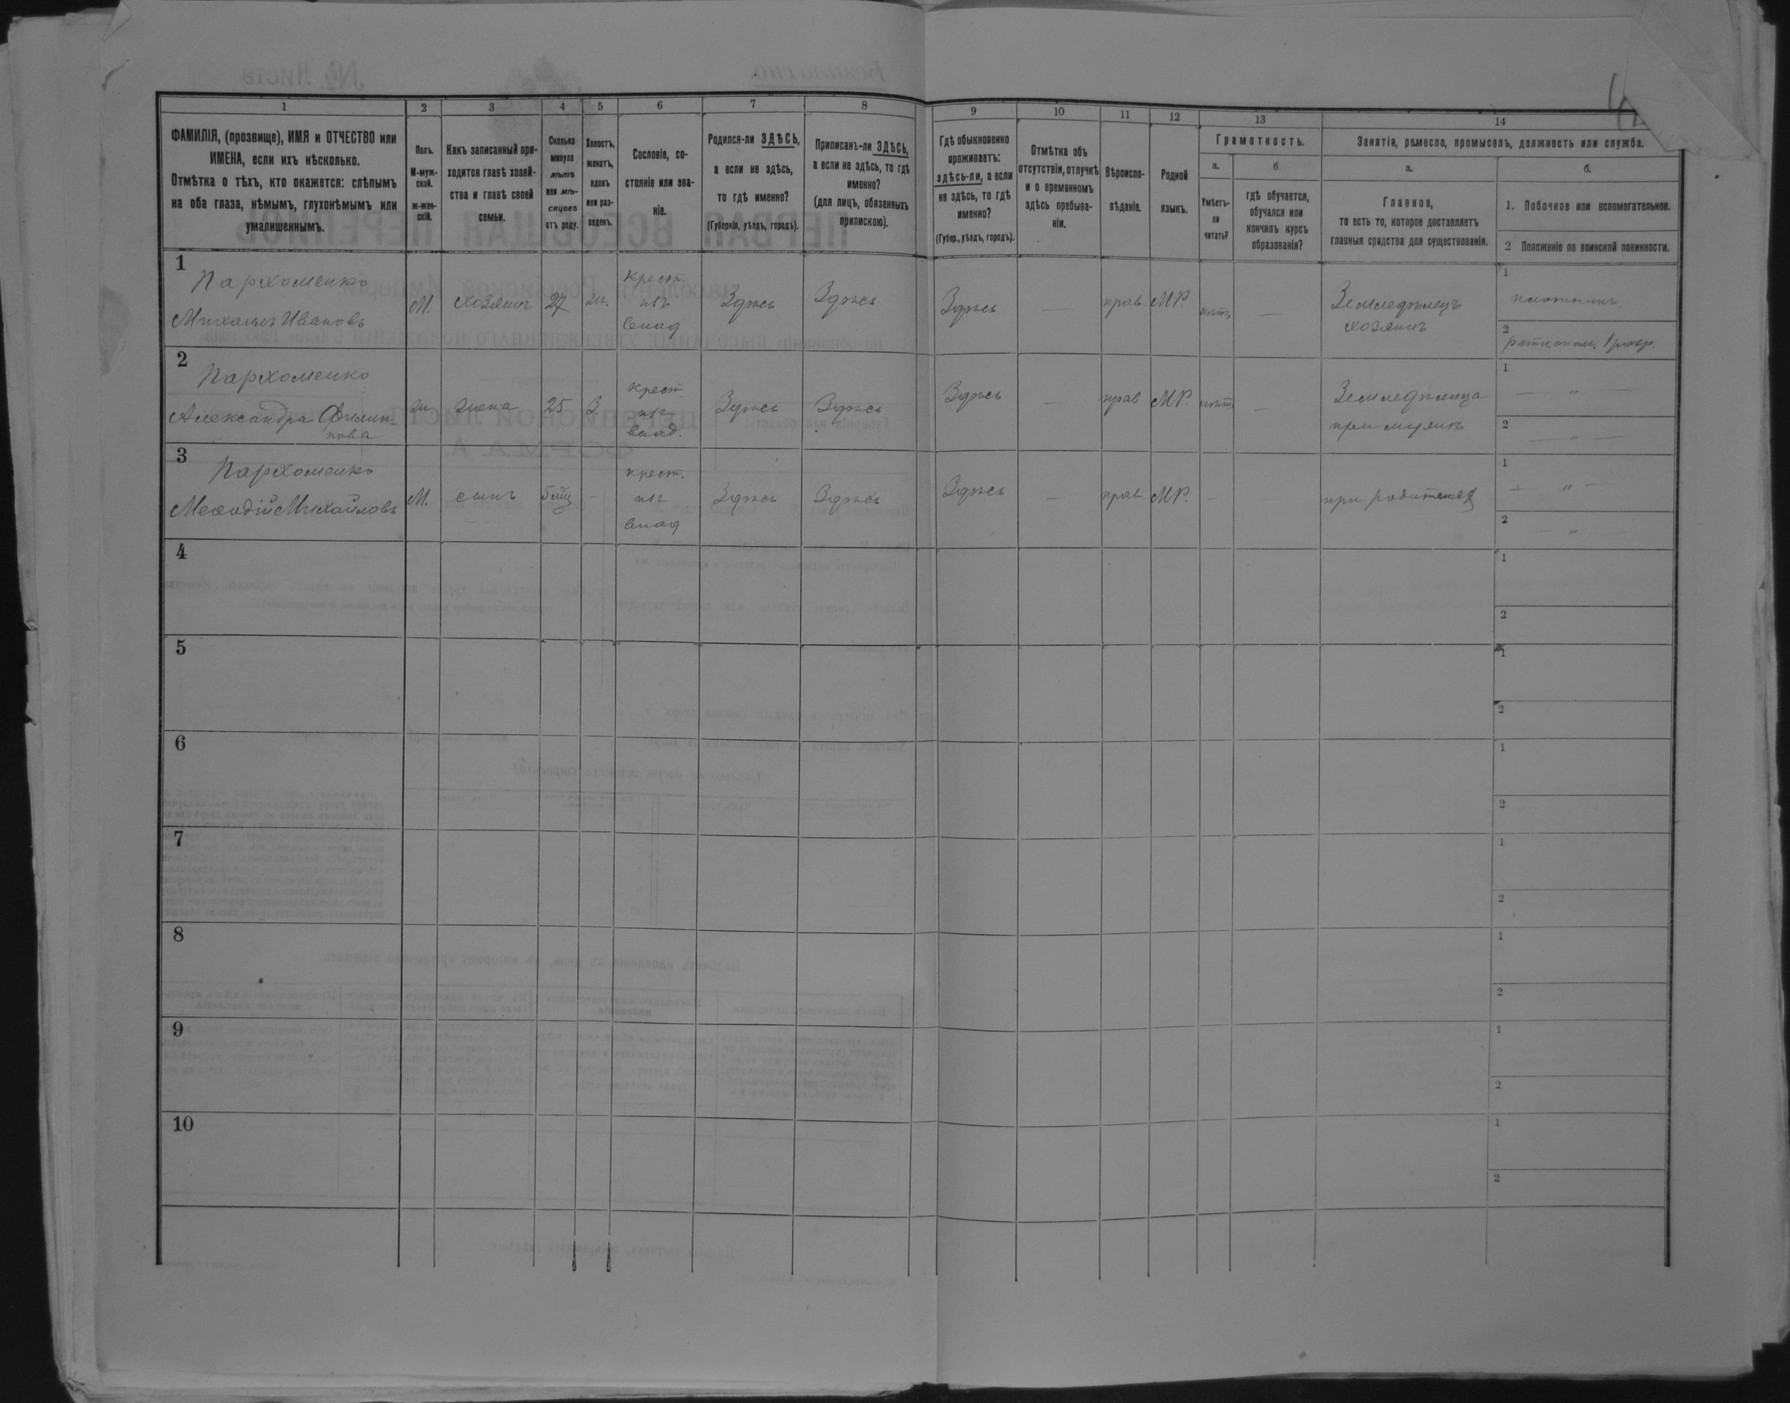 1 2 3 4 5 6 7 8 9 10 11 12 13 14
ФАМИЛІЯ, (прозвище), ИМЯ и ОТЧЕСТВО или
ИМЕНА, если ихъ нѣсколько.
Отмѣтка о тѣхъ, кто окажется: слѣпымъ
на оба глаза, нѣмымъ, глухонѣмымъ или
умалишеннымъ.
Полъ.
М-муж-
ской.
ж-жен-
скій.
Какъ записанный при-
ходится главѣ хозяй-
ства и главѣ своей
семьи.
Сколько
минуло
лѣтъ
или мѣ-
сяцевъ
отъ роду.
Холостъ,
женатъ,
вдовъ
или раз-
веденъ.
Сословіе, со-
стояніе или зва-
ніе.
Родился-ли ЗДѢСЬ,
а если не здѣсь,
то гдѣ именно?
(Губернія, уѣздъ, городъ).
Приписанъ-ли ЗДѢСЬ,
а если не здѣсь, то гдѣ
именно?
(для лицъ, обязанныхъ
припискою).
Гдѣ обыкновенно
проживаетъ:
здѣсь-ли, а если
не здѣсь, то гдѣ
именно?
(Губер., уѣздъ, городъ).
Отмѣтка объ
отсутствіи, отлучкѣ
и о временномъ
здѣсь пребыва-
ніи.
Вѣроиспо-
вѣданіе.
Родной
языкъ.
Грамотность.
а.
Умѣетъ-
ли
читать?
б.
гдѣ обучается,
обучался или
кончилъ курсъ
образованія?
Занятіе, ремесло, промыселъ, должность или служба.
а.
Главное,
то есть то, которое доставляетъ
главныя средства для существованія.
б.
1. Побочное или вспомогательное.
2 Положеніе по воинской повинности.
1
Пархоменко
Михаилъ Ивановъ
М.
хозяинъ
27
ж.
крест.
изъ
влад
Здѣсь
Здѣсь
Здѣсь
—
прав
МР.
нѣтъ
—
Земледѣлецъ
хозяинъ
1
плотникъ
2
2
Пархоменко
Александра Филип-
пова
ж.
жена
25
З.
крест
изъ
влад.
Здѣсь
Здѣсь
Здѣсь
—
прав
МР.
нѣтъ
—
Земледѣлица
при мужѣ
1
— „ —
2
— „ —
3
Пархоменко
Меѳодій Михайловъ
М.
сынъ
–
крест.
изъ
влад
Здѣсь
Здѣсь
Здѣсь
—
прав
МР.
–
при родителяхъ
1
— „ —
2
— „
4
1
2
5
1
2
6
1
2
7
1
2
8
1
2
9
1
2
10
1
2